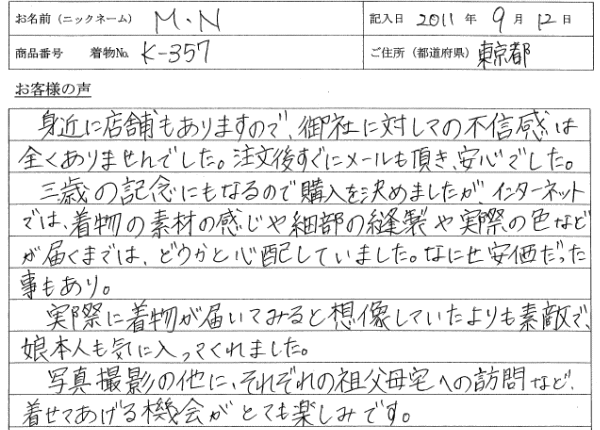 お名前（ニックネーム） M.N 記入日 2011年 9月 12日
商品番号 着物No. K-357 ご住所（都道府県） 東京都
お客様の声
身近に店舗もありますので、御社に対しての不信感は
全くありませんでした。注文後すぐにメールも頂き、安心でした。
三歳の記念にもなるので購入を決めましたが インターネット
では、着物の素材の感じや細部の縫製や実際の色など
が届くまでは、どうかと心配していました。なにせ安価だった
事もあり。
実際に着物が届いてみると想像していたよりも素敵で、
娘本人も気に入ってくれました。
写真撮影の他に、それぞれの祖父母宅への訪問など、
着せてあげる機会がとても楽しみです。